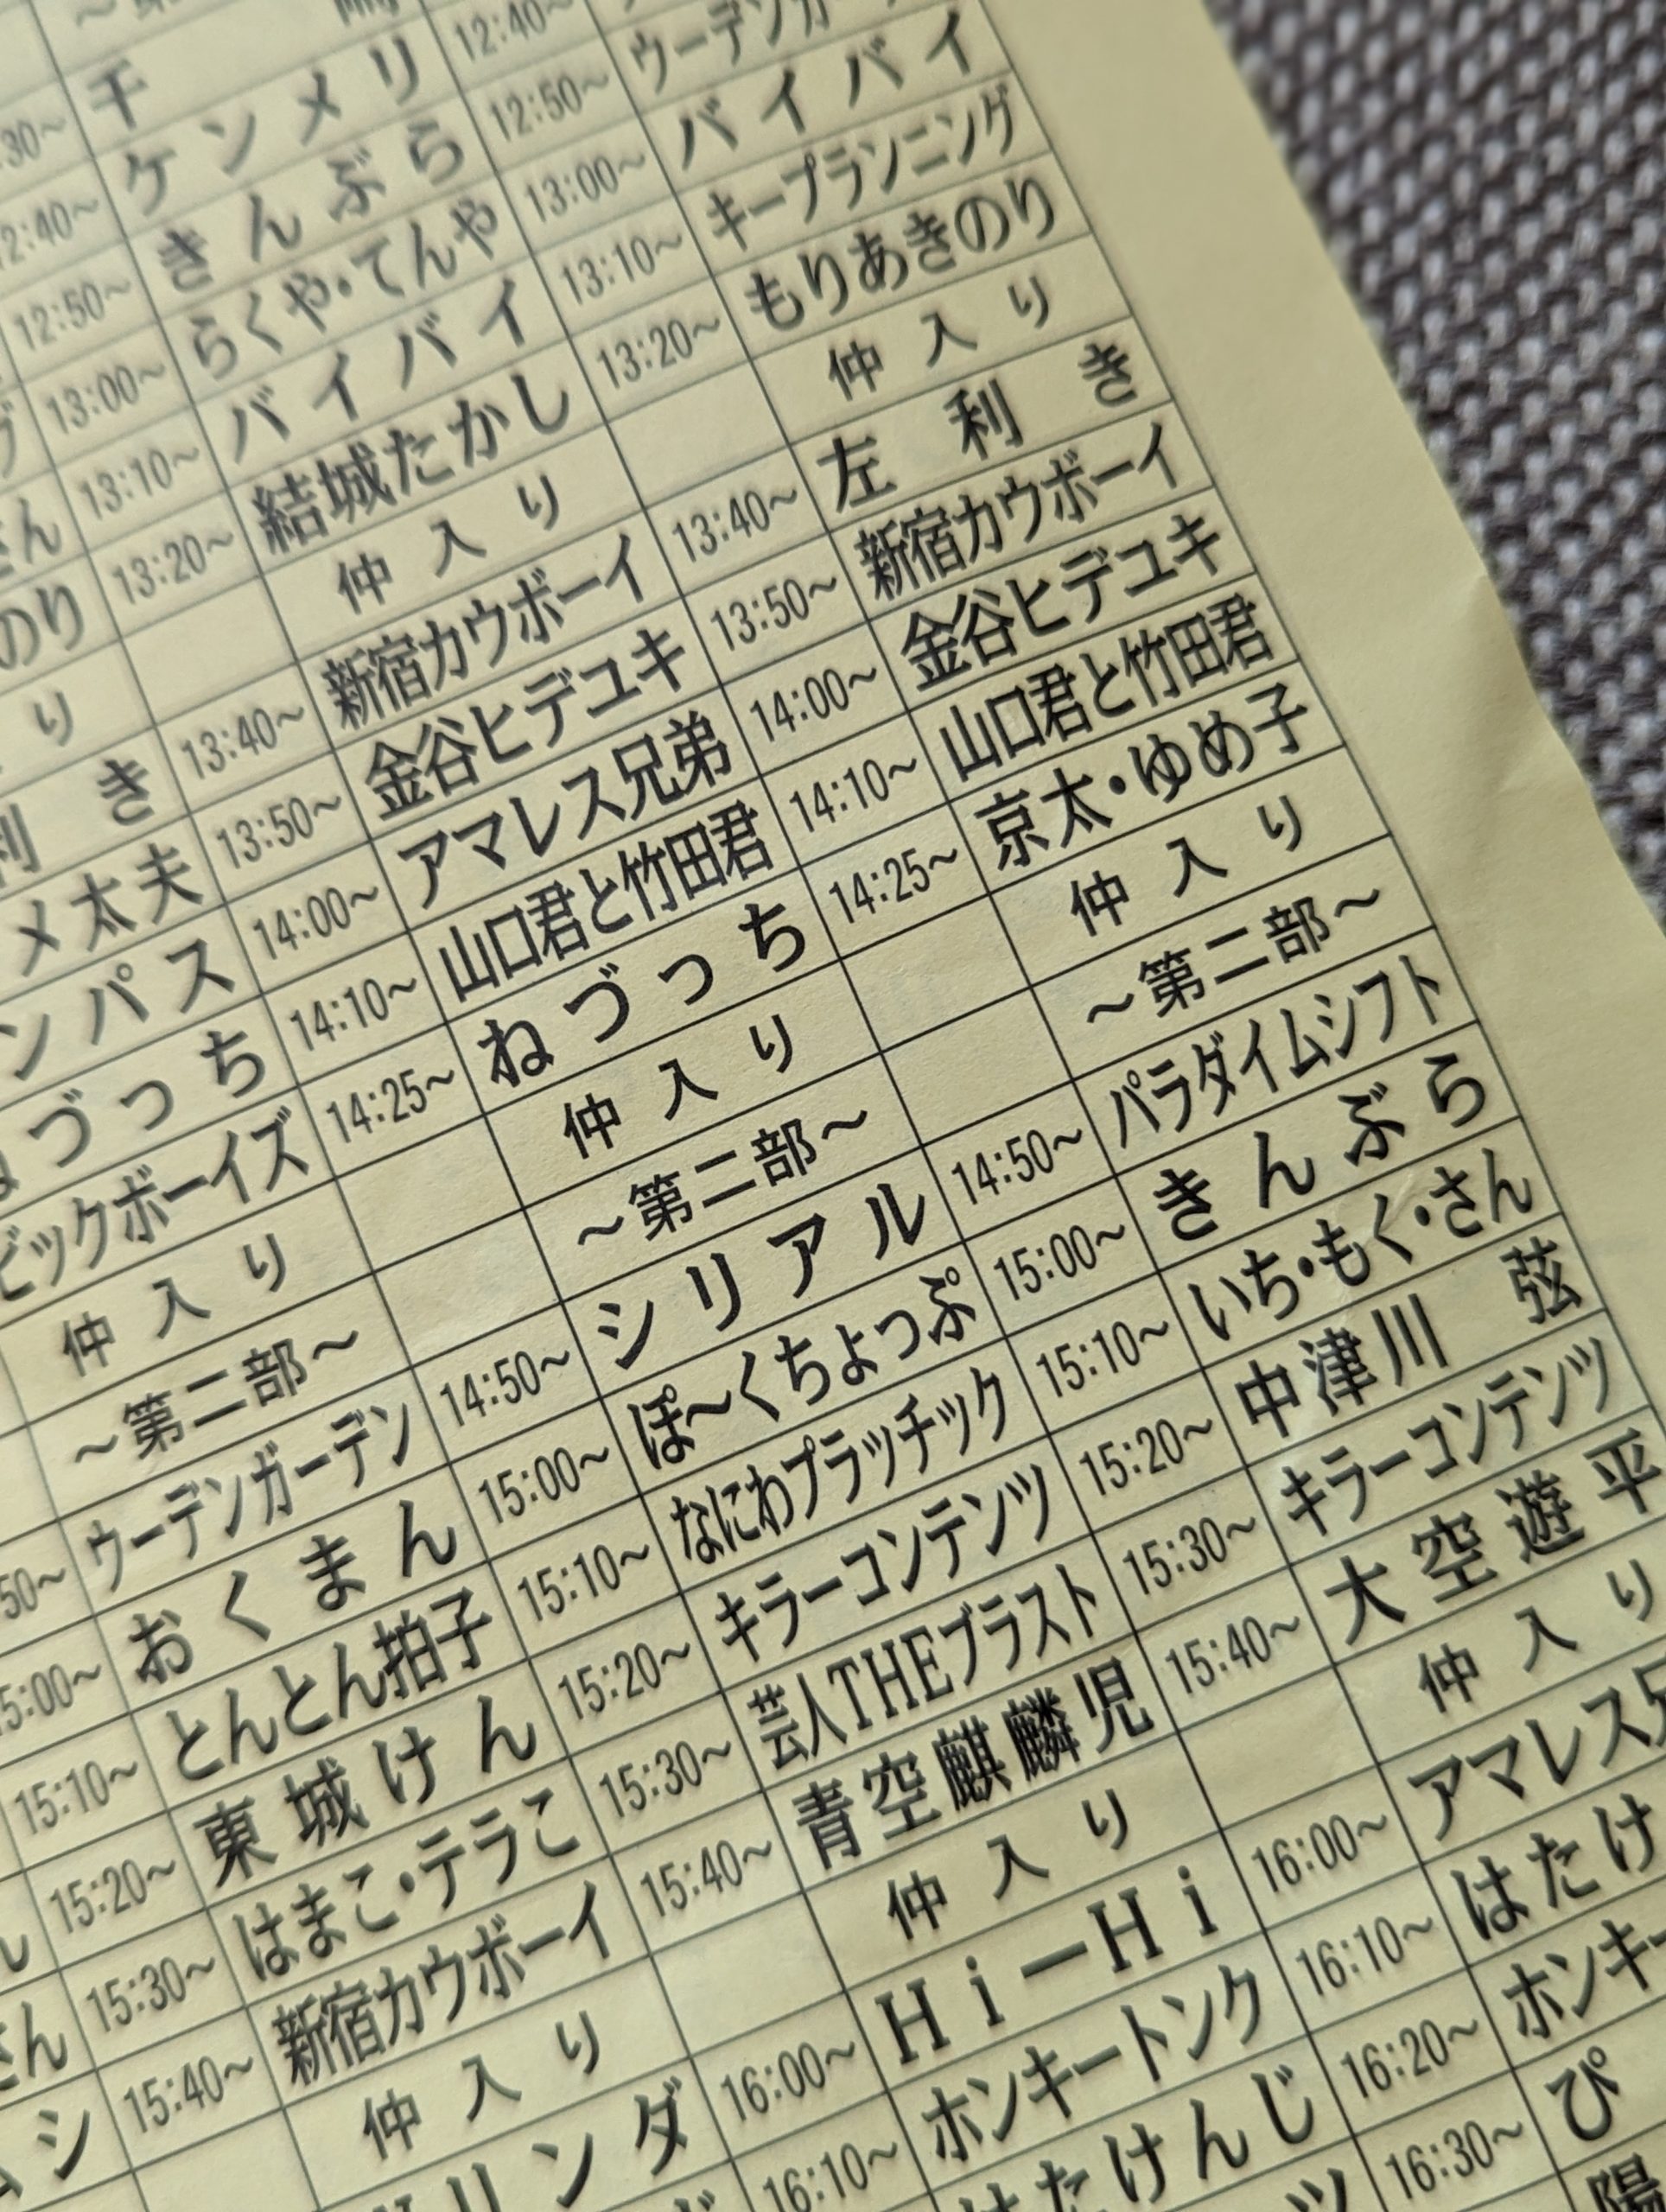 さん
のり
り
利き
メ太夫
ンパス
づっち
ビックボーイズ
仲入り
～第二部～
50～ ウーデンガーデン
15:00～ おくまん
15:10～ とんとん拍子
15:20～ 東城けん
15:30～ はまこ・テラこ
15:40～ 新宿カウボーイ
仲入り
リンダ
30～ 千
12:40～ ケンメリ
12:50～ きんぶら
13:00～ らくや・てんや
13:10～ バイバイ
13:20～ 結城たかし
仲入り
13:40～ 新宿カウボーイ
13:50～ 金谷ヒデユキ
14:00～ アマレス兄弟
14:10～ 山口君と竹田君
14:25～ ねづっち
仲入り
～第二部～
14:50～ シリアル
15:00～ ぽ～くちょっぷ
15:10～ なにわプラッチック
15:20～ キラーコンテンツ
15:30～ 芸人THEブラスト
15:40～ 青空麒麟児
仲入り
16:00～ Hi－Hi
16:10～ ホンキートンク
はたけんじ
12:40～
12:50～ ウーデンガー
13:00～ バイバイ
13:10～ キープランニング
13:20～ もりあきのり
仲入り
13:40～ 左利き
13:50～ 新宿カウボーイ
14:00～ 金谷ヒデユキ
14:10～ 山口君と竹田君
14:25～ 京太・ゆめ子
仲入り
～第二部～
14:50～ パラダイムシフト
15:00～ きんぶら
15:10～ いち・もく・さん
15:20～ 中津川 弦
15:30～ キラーコンテンツ
15:40～ 大空遊平
仲入り
16:00～ アマレス兄
16:10～ はたけ
16:20～ ホンキー
16:30～ ぴ
陽